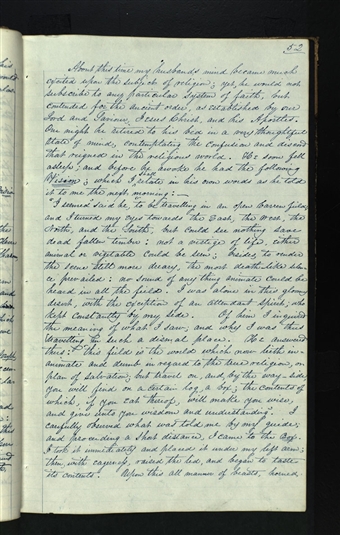 52
About this time my husbands mind became much
excited upon the subject of religion; yet he would not
subscribe to any particular system of faith, but
contended for the ancient order, as established by our
Lord and Savior, Jesus Christ, and his Apostles.
One night he retired to his bed in a very thoughtful
state of mind, contemplating the confusion and discord
that reigned in the religious world. He soon fell
asleep; and before he awoke he had the following
Vision; which I relate in his own words as he told
it to me the next morning:
"I seemed said he, to be travelling in an open Barren field;
and I turned my eyes towards the East, the West, the
North, and the South, but could see nothing save
dead fallen timber: not a vestige of life, either
animal or vegitable could be seen; besides to render
the scene still more dreary, the most death-like silence
prevailed: no sound of any thing animate could be
heard in all the field. I was alone in this gloomy
desert, with the exception of an attendant Spirit; who
kept constantly by my side. Of him I inquired
the meaning of what I saw; and why I was thus
travelling in such a dismal place. He answered
thus: "this field is the world which now lieth in-
animate and dumb in regard to the true religion, or
plan of salvation; but travel on, and by the way-side
you will find on a certain log, a box; the contents of
which, if you eat thereof, will make you wise,
and give unto you wisdom and understanding". I
carefully observed what was told me by my guide;
and proceeding a short distance, I came to the Box.
I took it immediately and placed it under my left arm;
then, with eagerness, raised the lid, and began to taste
its contents. Upon this all manner of beasts, horned